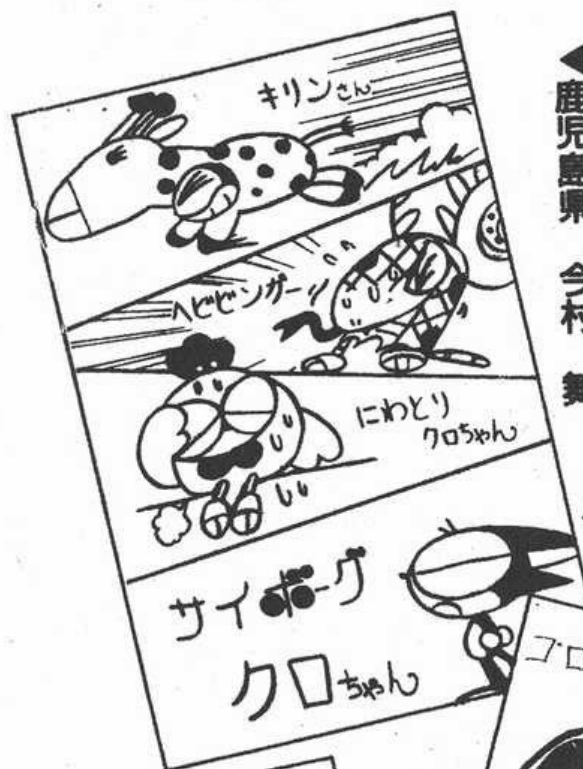 キリンさん
ヘビビンガー!!
にわとり
クロちゃん
サイボーグ
クロちゃん
鹿児島県 今村